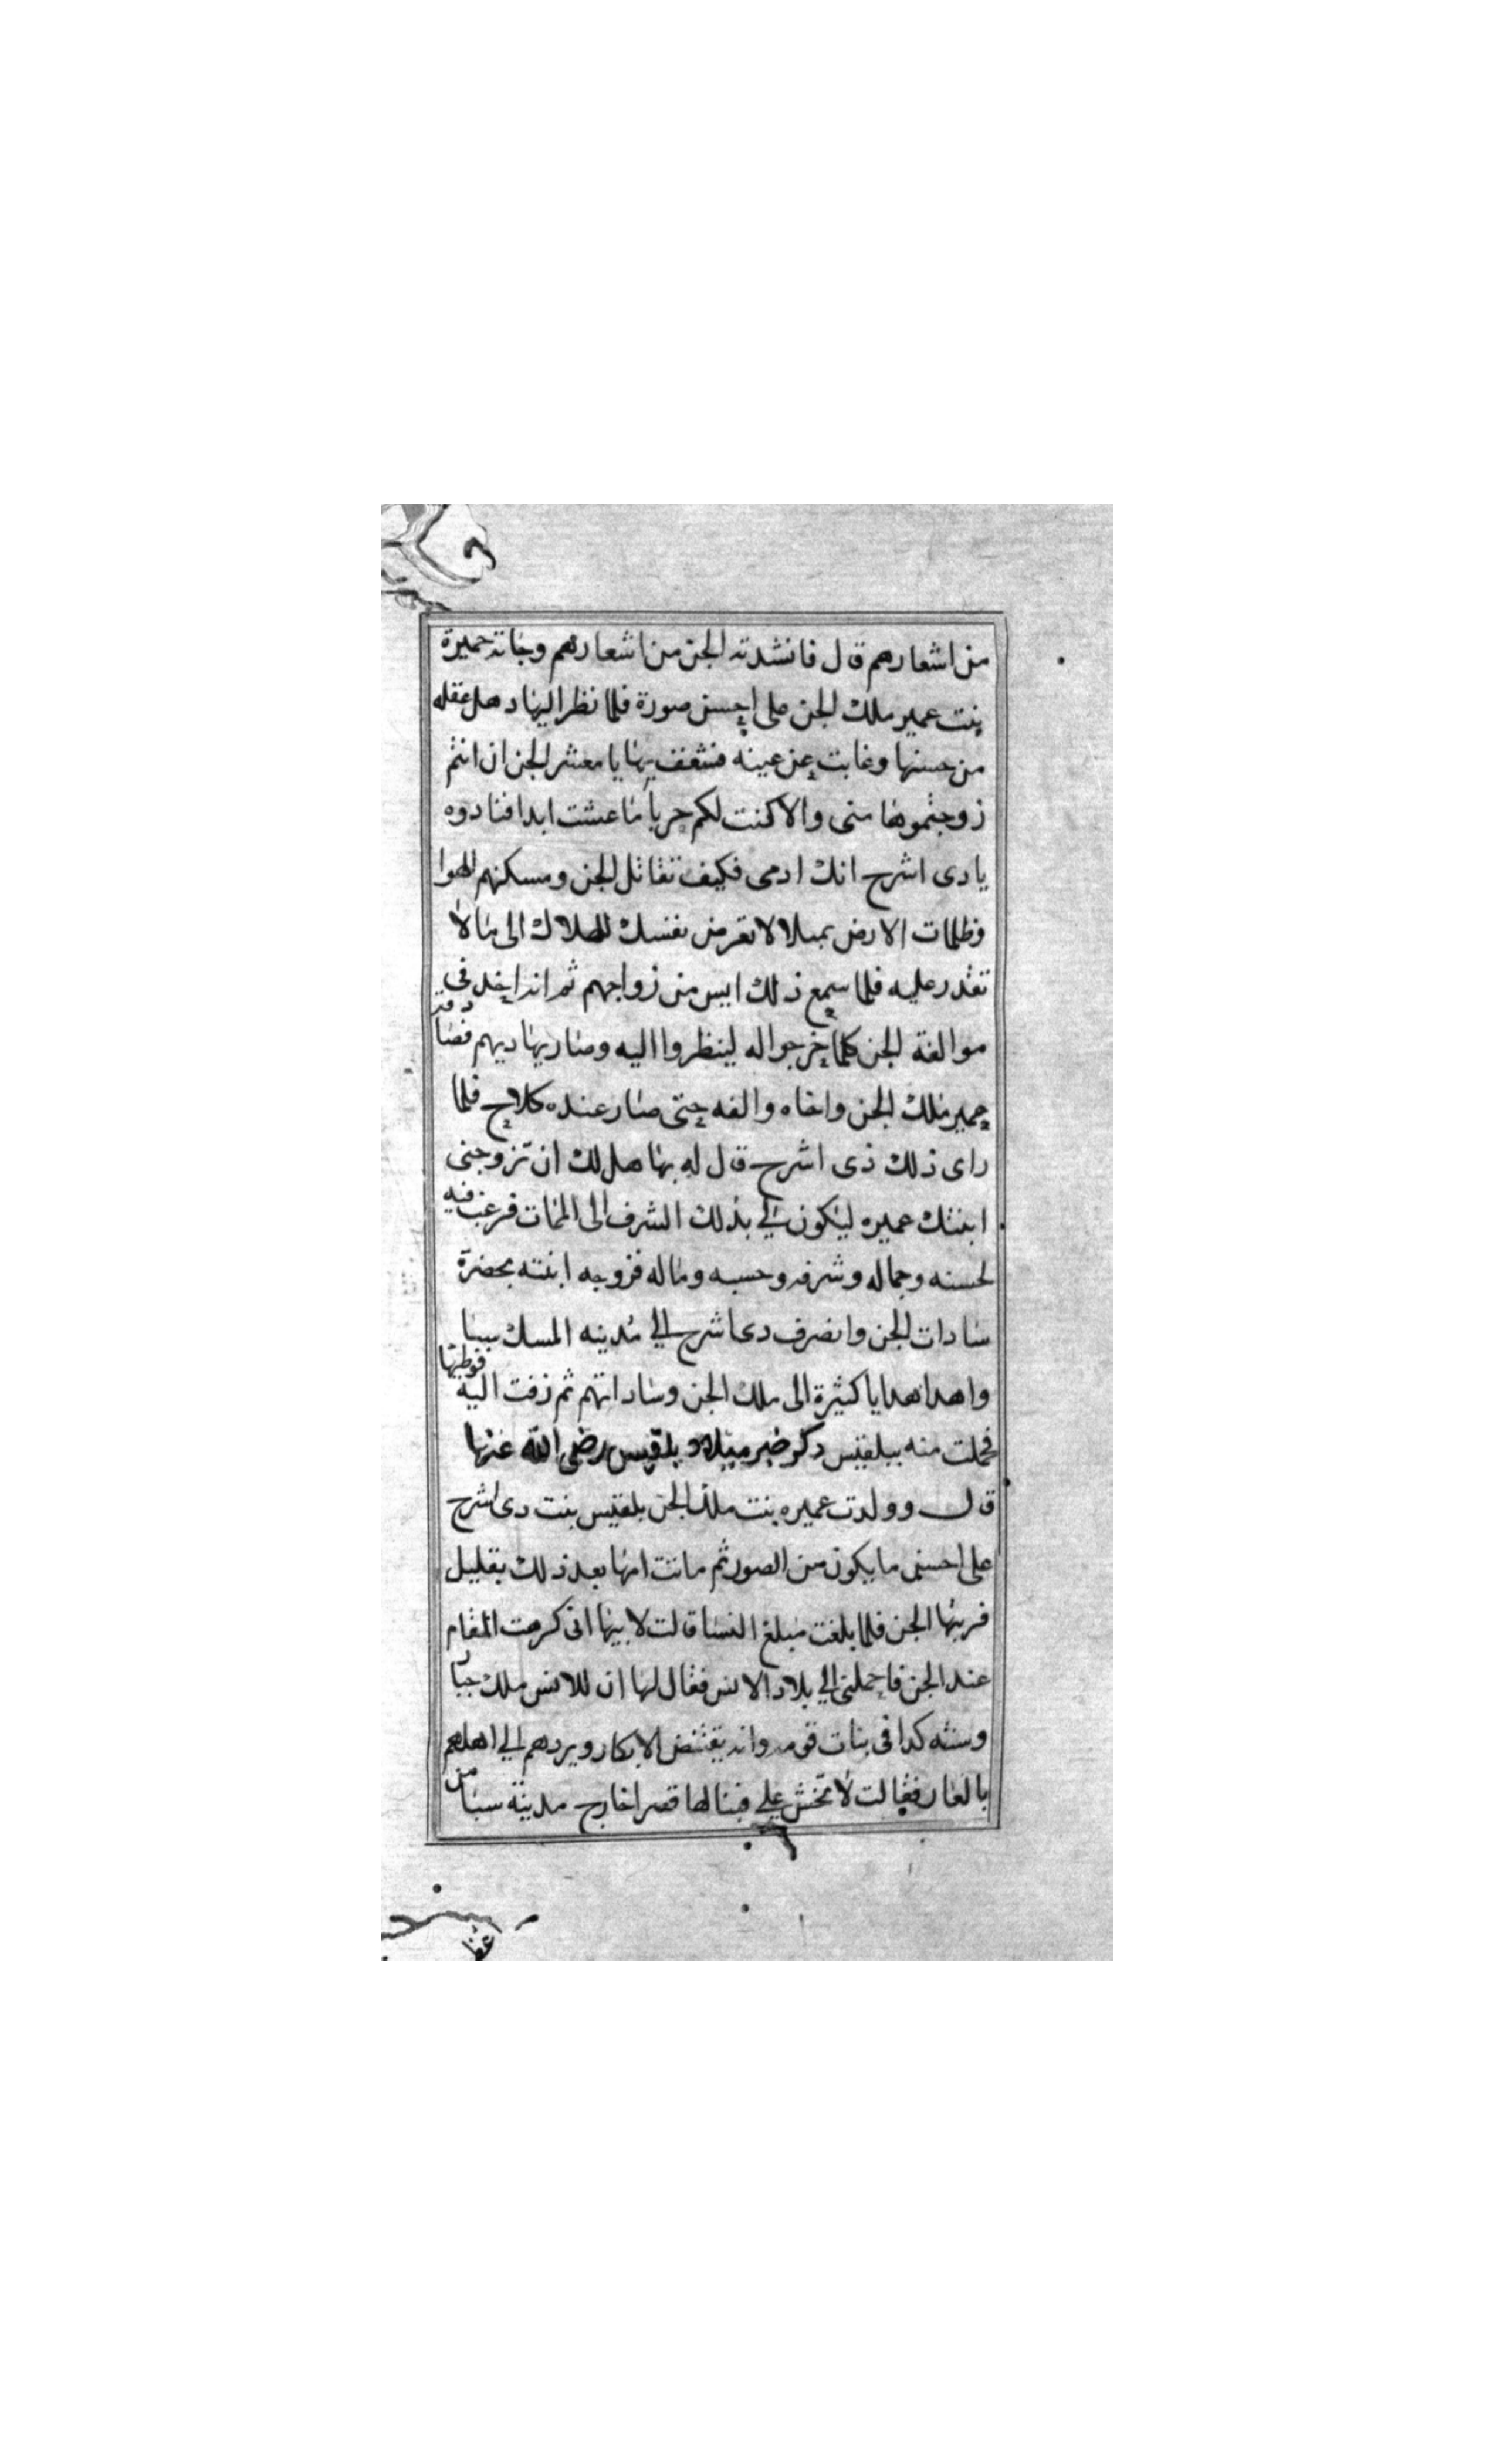 من اشعارهم قال فانشدته الجن من اشعارهم وجاته حميرة
بنت عمير ملك الجن على احسن صورة فلما نظر اليها دهل عقله
من حسنها وغابت عن عينه فشغف بها يا معشر الجن ان انتم
زوجتموها منى والا كنت لكم حربا ما عشت ابدا فنادوه
يا دى اشرح انك ادمى فكيف تقاتل الجن ومسكنهم الهوا
وظلمات الارض مهلا لا تعرض نفسك للهلاك الى ما لا
تقدر عليه فلما سمع ذلك ايس من زواجهم ثم انه اخد فى
موالفة الجن كلما خرجوا له لينظروا اليه وصار يهاديهم فصادقه
عمير ملك الجن واخاه والفه حتى صار عنده كلاح فلما
راى ذلك ذى اشرح قال له بها هل لك ان تزوجنى
ابنتك عميره ليكون لي بذلك الشرف الى الممات فرغب فيه
لحسنه وجماله وشرفه وحسبه وماله فزوجه ابنته بحضرة
سادات الجن وانصرف دى اشرح الي مدينه المسك بسبا
واهدا هدايا كثيرة الى ملك الجن وساداتهم ثم زفت اليه فوطيها
فحملت منه ببلقيس دكر خبر ميلاد بلقيس رضى الله عنها
قال وولدت عميره بنت ملك الجن بلقيس بنت دى اشرح
على احسن ما يكون من الصور ثم ماتت امها بعد ذلك بقليل
فربتها الجن فلما بلغت مبلغ النسا قالت لابيها انى كرهت المقام
عند الجن فاحملنى الي بلاد الانس فقال لها ان للانس ملك جبار
وسنته كدا فى بنات قومه وانه يقتنض الابكار ويردهم الي اهلهم
بالعار فقالت لا تخش علي فبنا لها قصرا خارج مدينة سبا من